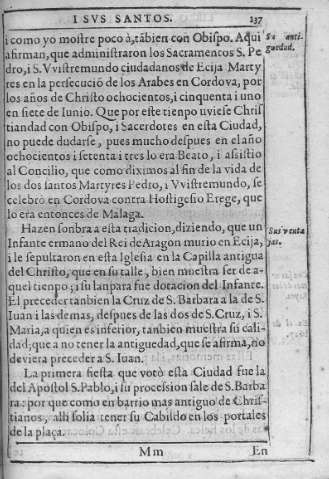 I SVS SANTOS. 237
i como yo mostre poco à, tābien con Obispo. Aqui
afirman, que administraron los Sacramentos S. Pe
dro, i S. Vvistremundo ciudadanos de Ecija Marty
res en la persecució de los Arabes en Cordova, por
los años de Christo ochocientos, i cinquenta i uno
en siete de Iunio. Que por este tienpo uviese Chris
tiandad con Obispo, i Sacerdotes en esta Ciudad,
no puede dudarse, pues mucho despues en el año
ochocientos i setenta i tres lo era Beato, i assistio
al Concilio, que como diximos al fin de la vida de
los dos santos Martyres Pedro, i Vvistremundo, se
celebrò en Cordova contra Hostigesio Erege, que
lo era entonces de Malaga.
Hazen sonbra a esta tradicion, diziendo, que un
Infante ermano del Rei de Aragon murio en Ecija,
i le sepultaron en esta Iglesia en la Capilla antigua
del Christo, que en su talle, bien muestra ser de a-
quel tienpo; i su lanpara fue dotacion del Infante.
El preceder tanbien la Cruz de S. Barbara a la de S.
Iuan i las demas, despues de las dos de S. Cruz, i S.
Maria, a quien es inferior, tanbien muestra su cali-
dad; que a no tener la antiguedad, que se afirma, no
deviera preceder a S. Iuan.
La primera fiesta que votò esta Ciudad fue la
del Apostol S. Pablo, i su procession sale de S. Barba
ra: por que como en barrio mas antiguo de Chris-
tianos, alli solia tener su Cabildo en los portales
de la plaça.
Mm En
Su anti-
guedad.
Sus venta
jas.